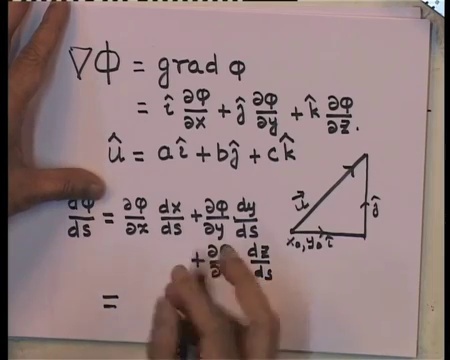 ∇Φ = grad φ
= î ∂φ/∂x + ĵ ∂φ/∂y + k̂ ∂φ/∂z.
û = aî + bĵ + ck̂
dφ/ds = ∂φ/∂x dx/ds + ∂φ/∂y dy/ds
+ dz/ds
=
u⃗
ĵ
x₀, y₀ î